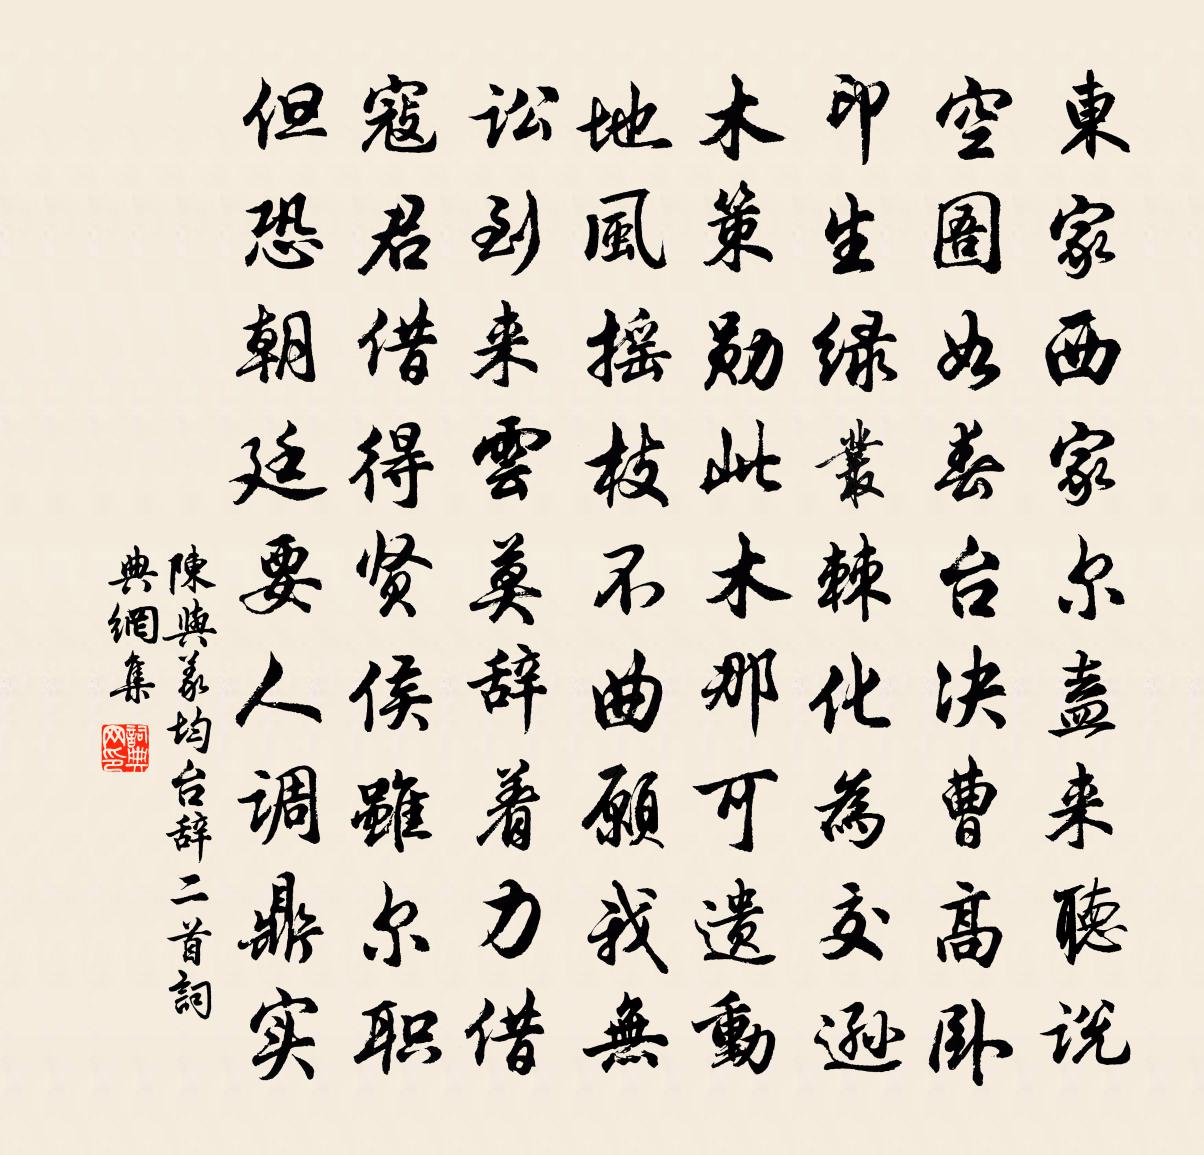 東家西家尔盍来聽说
空圄如春台决曹高卧
印生绿叢棘化為交遜
木策勋此木那可遗動
地風摇枝不曲願我無
讼到来雲莫辞着力借
寇君借得贤侯雖尔职
但恐朝廷要人调鼎实
陳與義均台辞二首詞
典網集
詞典网印